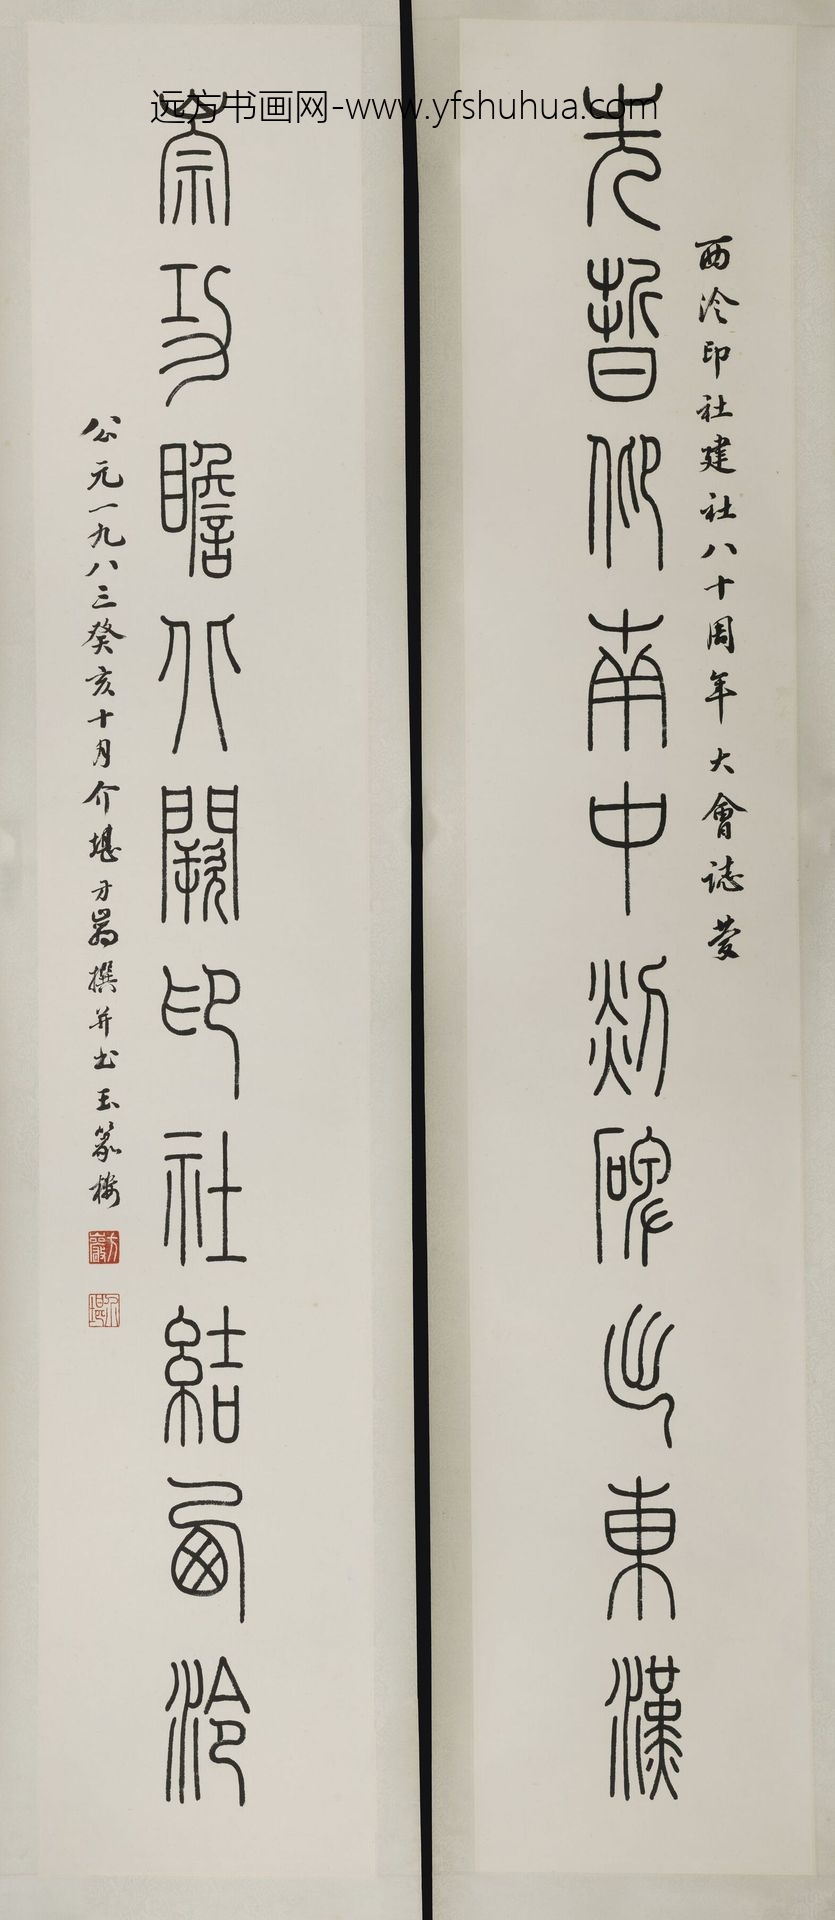 远方书画网-www.yfshuhua.com
西泠印社建社八十周年大會誌慶
先哲仰南中剡碑出東漢
崇功瞻北闕印社結西泠
公元一九八三癸亥十月介堪方巖撰并書玉篆樓
方巖
介堪